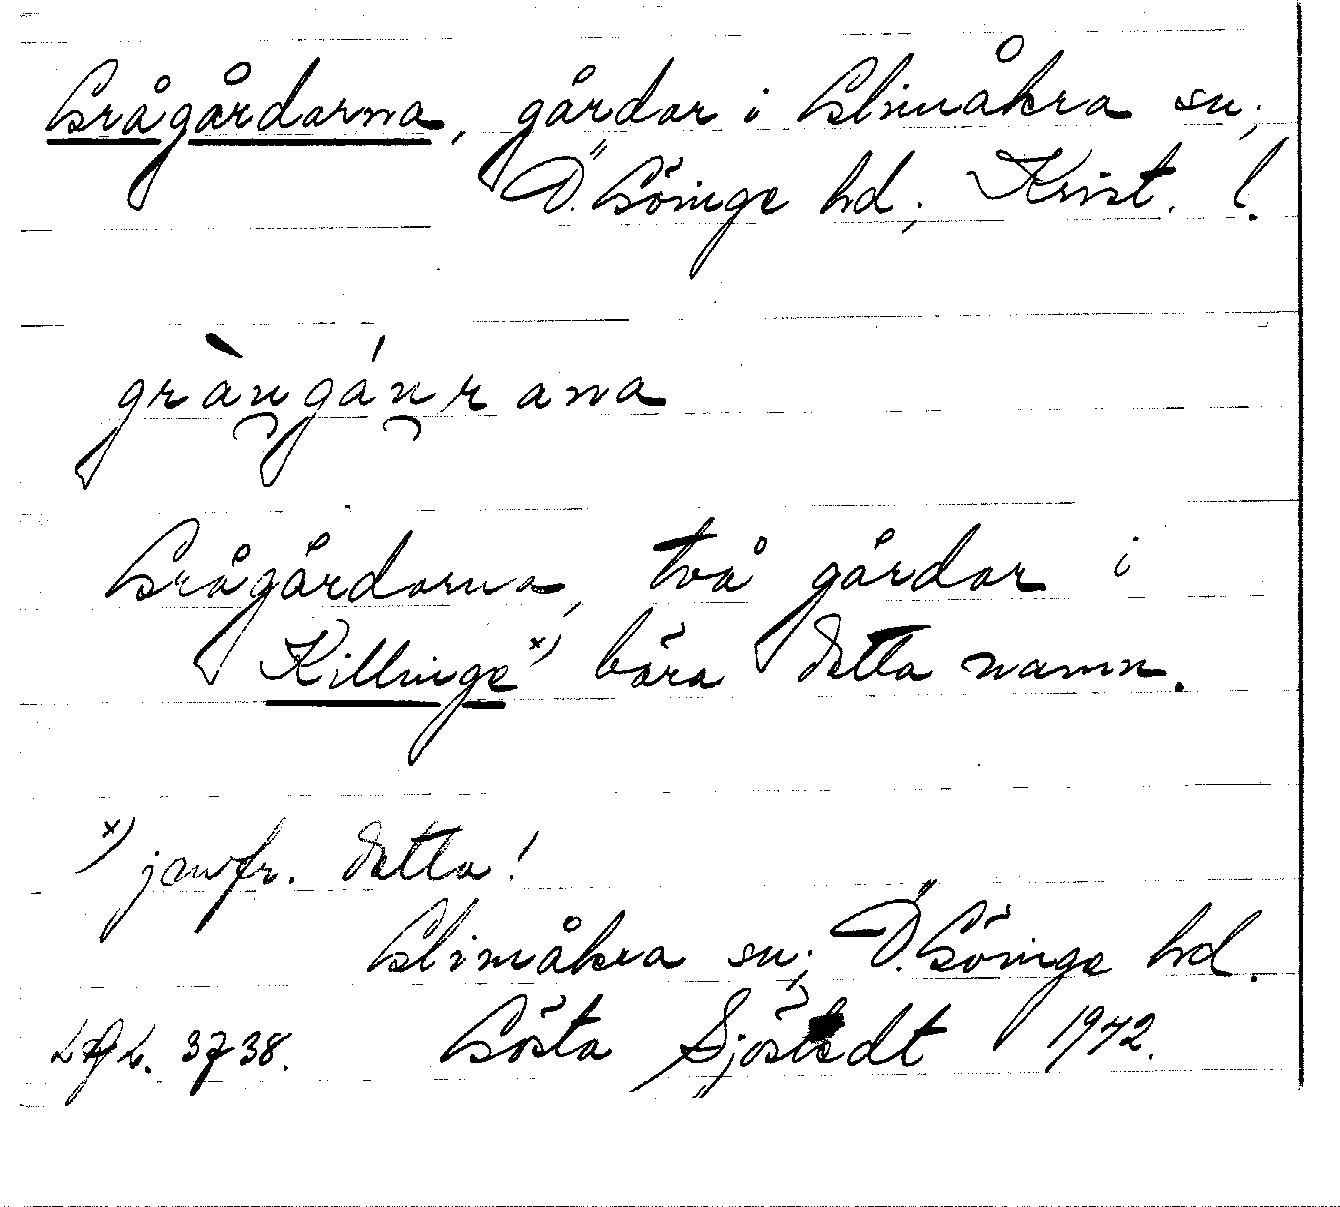 Grågårdarna, gårdar i Glimåkra sn;
Ö. Göinge hd; Krist. l.
gràu̯gáu̯rana
Grågårdarna, två gårdar i
Killinge x) bära detta namn.
x) jämfr. detta!
Glimåkra sn; Ö. Göinge hd.
Gösta Sjöstedt 1942.
3738.